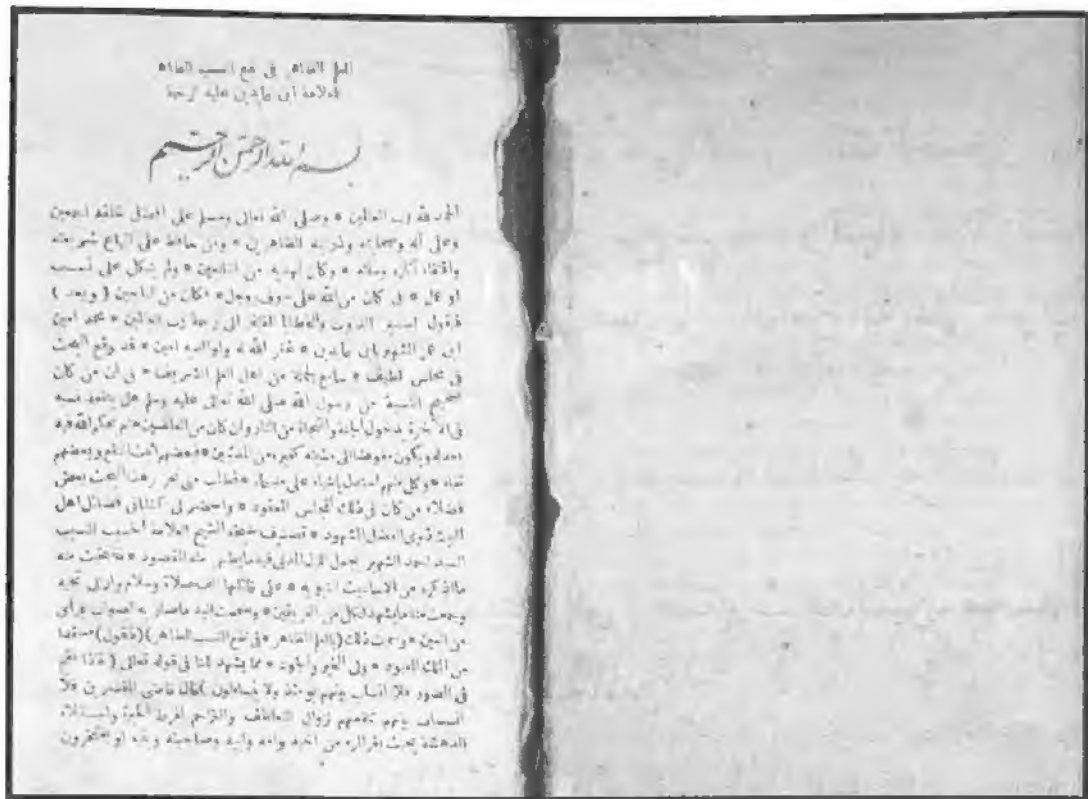 العلم الظاهر في نفع النسب الطاهر
للعلامة ابن عابدين عليه الرحمة
بسم الله الرحمن الرحيم
الحمد لله رب العالمين * وصلى الله تعالى وسلم على افضل خلقه اجمعين
وعلى آله وصحابته وذريته الطاهرين * ومن حافظ على اتباع شريعته
واقتفاء آثاره وسلامه * وكان لهديه من التابعين * ولم يتكل على نسب
او عمل * بل كان من الله على خوف ووجل * فكان من الناجين ( وبعد )
فيقول اسير الذنوب والخطايا المفتقر الى رحمة رب العالمين * محمد امين
ابن عمر الشهير بابن عابدين * غفر الله له ولوالديه امين * قد وقع البحث
في مجلس لطيف * جامع لجملة من اهل العلم الشريف * في ان من كان
صحيح النسبة من رسول الله صلى الله تعالى عليه وسلم هل ينفعه نسبه
في الآخرة بدخول الجنة والنجاة من النار وان كان من العاصين * ام يحكم الله فيه
بعدله ويكون مفوضا الى مشيئته كغيره من المذنبين * فبعضهم اثبت النفع وبعضهم
نفاه * وكل منهم استدل باشياء على مدعاه * فطلب مني تحرير هذا البحث بعض
فضلاء من كان في ذلك المجلس المعقود * واحضر لي كتابا في فضائل اهل
البيت ذوي الفضل المشهود * تصنيف الشيخ العلامة الحسيب النسيب
السيد احمد الشهير بجمل الليل المدني فيه ما يظهر منه المقصود * فانتخبت منه
ما اذكره من الاحاديث النبوية * على قائلها الف صلاة وسلام وازكى تحية
وجمعت منه ما يشهد لكل من الفريقين * وضممت اليه ما صار به الصواب برأى
من العين * وسميت ذلك (بالعلم الظاهر * في نفع النسب الطاهر) (فاقول) مستمدا
من الملك المعبود * ولي الخير والجود * مما يشهد لهذا قوله تعالى ( فاذا نفخ
في الصور فلا انساب بينهم يومئذ ولا يتساءلون ) قال قاضي المفسرين فلا
انساب بينهم تنفعهم لزوال التعاطف والتراحم لفرط الحيرة واستيلاء
الدهشة بحيث يفر المرء من اخيه وامه وابيه وصاحبته وبنيه او يفتخرون